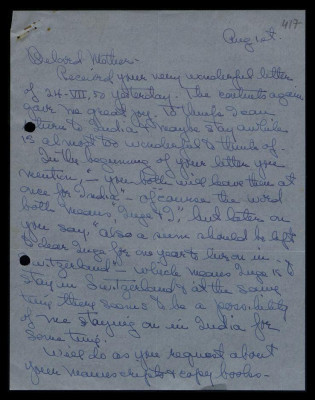 417
Aug 1st.
Beloved Mother-
Received your very wonderful letter
of 24-VII, 50 yesterday. The contents again
gave me great joy. To think I can
return to India & maybe stay awhile
is almost too wonderful to think of.
In the beginning of your letter you
mention, "- you both will leave then at
once for India" - of course the word
both means, Inge & I, but later on
you say "also a sum should be left
to dear Inge for one year to live on in
Switzerland" - which means Inge is to
stay in Switzerland & at the same
time there seems to be a possibility
of me staying on in India for
some time.
Will do as you request about
your manuscripts & copy books-